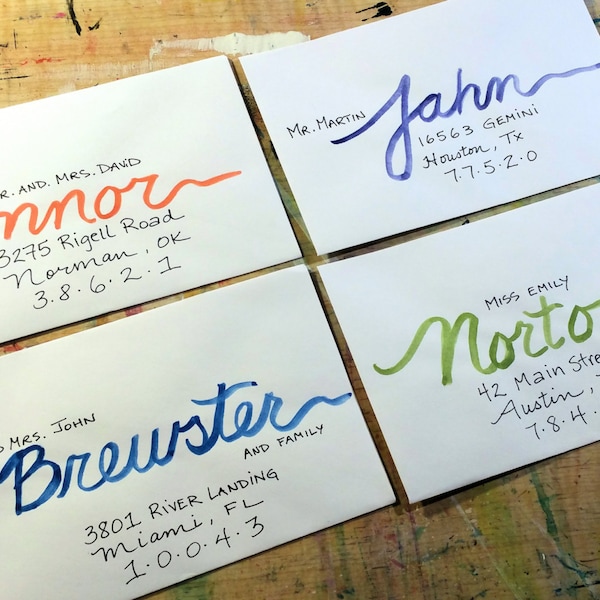 R. AND. MRS. DAVID
nnor
3275 Rigell Road
Norman, OK
3.8.6.2.1
MR. MARTIN Jahn
16563 GEMINI
Houston, Tx
7.7.5.2.0
MRS. JOHN
Brewster
AND FAMILY
3801 RIVER LANDING
Miami, FL
1.0.0.4.3
MISS EMILY
Norto
42 Main Stre
Austin,
7.8.4.